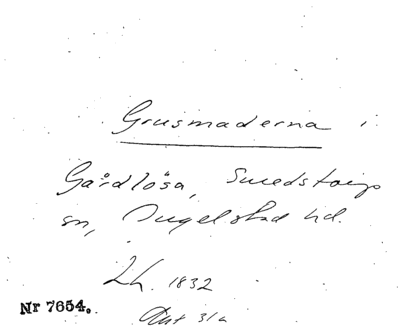 Grusmaderna i
Gårdlösa, Smedstorps
sn, Ingelstad hd.
Lh. 1832
Akt 31a
Nr 7654.